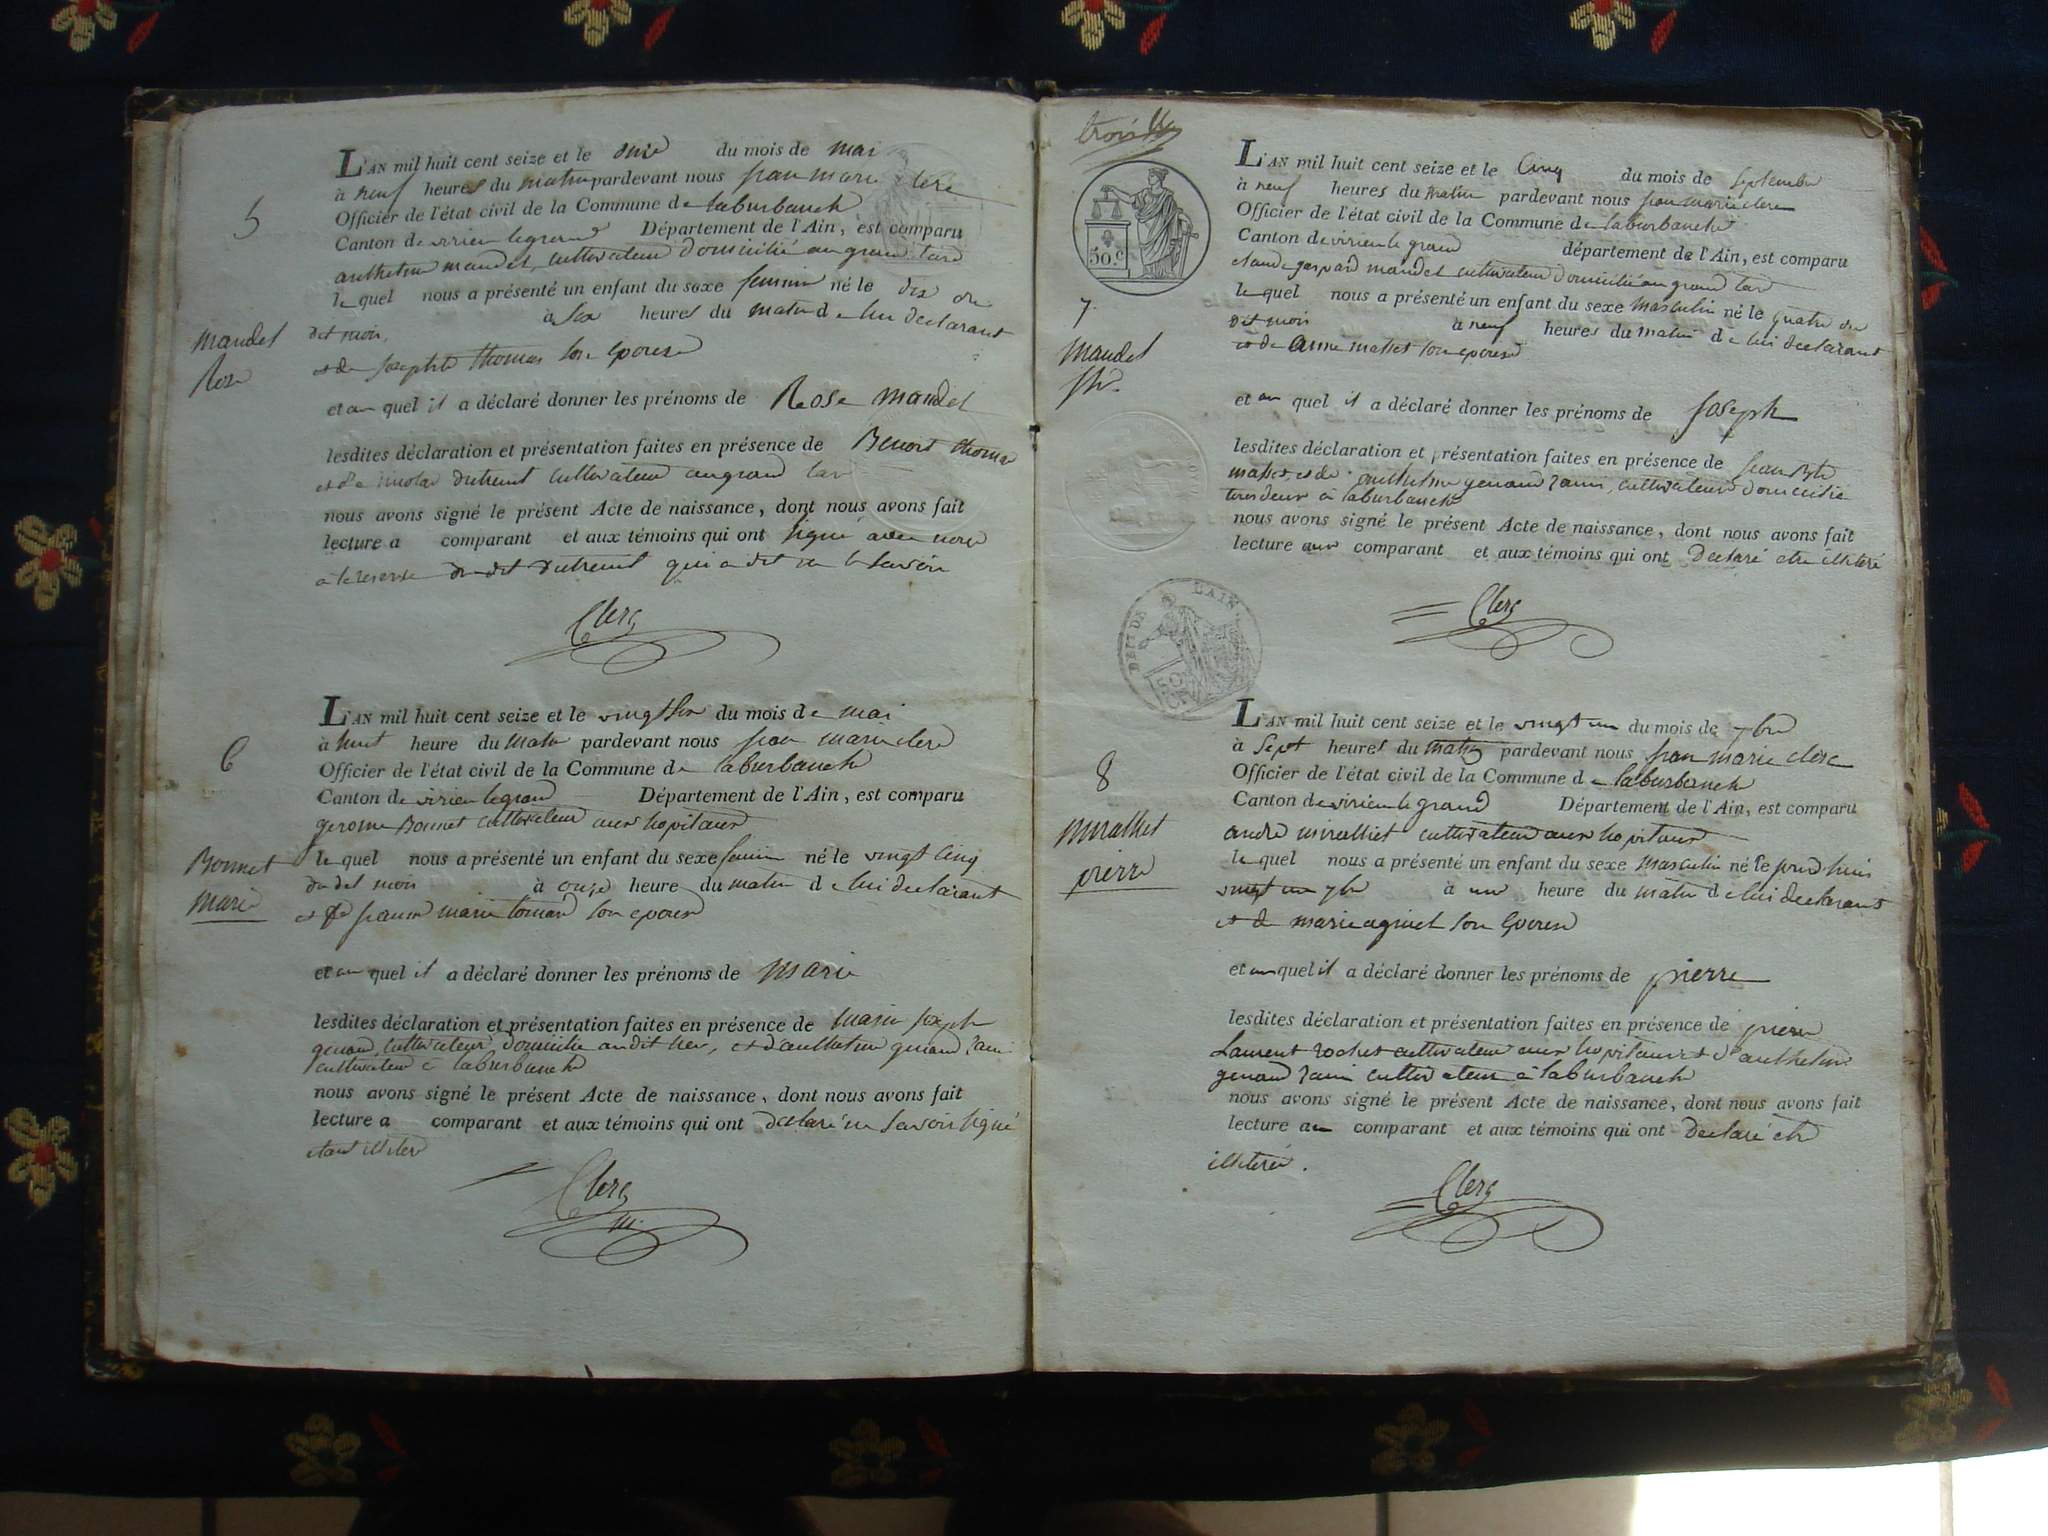 5
L'AN mil huit cent seize et le onze du mois de mai
à neuf heures du matin pardevant nous jean marie clerc
Officier de l'état civil de la Commune de laburbanche
Canton de virieu legrand Département de l'Ain, est comparu
anthelme mandet, cultivateur domicilié au grand tard
le quel nous a présenté un enfant du sexe feminin né le dix du
dit mois, à Six heures du matin de lui declarant
et de josephte thomas son epouse
mandet
Rose
et au quel il a déclaré donner les prénoms de Rose mandet
lesdites déclaration et présentation faites en présence de Benoit thomas
et de nicolas dutreuil cultivateur au grand tar
nous avons signé le présent Acte de naissance, dont nous avons fait
lecture a comparant et aux témoins qui ont signé avec nous
a la reserve du dit dutreuil qui a dit ne le savoir
Clerc
6
L'AN mil huit cent seize et le vingt Six du mois de mai
à huit heure du matin pardevant nous jean marie clerc
Officier de l'état civil de la Commune de laburbanche
Canton de virieu legrand Département de l'Ain, est comparu
gerome Bonnet cultivateur aux hopitaux
Bonnet
marie
le quel nous a présenté un enfant du sexe feminin né le vingt Cinq
du dit mois à onze heure du matin de lui declarant
et de marie son epouse
et au quel il a déclaré donner les prénoms de marie
lesdites déclaration et présentation faites en présence de marin joseph
genand, cultivateur domicilié audit lieu, et d'anthelme genand
cultivateur à laburbanche
nous avons signé le présent Acte de naissance, dont nous avons fait
lecture a comparant et aux témoins qui ont declaré ne savoir signé
etant illiteré
Clerc
m.
trois
50 c
7.
L'AN mil huit cent seize et le Cinq du mois de Septembre
à neuf heures du matin pardevant nous jean marie clerc
Officier de l'état civil de la Commune de laburbanche
Canton de virieu le grand département de l'Ain, est comparu
claude gaspard mandet cultivateur domicilié au grand tard
le quel nous a présenté un enfant du sexe masculin né le quatre du
dit mois à neuf heures du matin de lui declarant
et de Anne masset son epouse
mandet
jph.
et au quel il a déclaré donner les prénoms de Joseph
lesdites déclaration et présentation faites en présence de jean Bte
masset, et de anthelme genand, cultivateur domicilié
tous deux à laburbanche
nous avons signé le présent Acte de naissance, dont nous avons fait
lecture aux comparant et aux témoins qui ont Declaré etre illiteré
Clerc
DEPT DE L'AIN
8
L'AN mil huit cent seize et le vingt un du mois de 7bre
à Sept heures du matin pardevant nous jean marie clerc
Officier de l'état civil de la Commune de laburbanche
Canton de virieu le grand Département de l'Ain, est comparu
andré miralliet cultivateur aux hopitaux
miralliet
pierre
le quel nous a présenté un enfant du sexe masculin né le jourdhui
vingt un 7bre à une heure du matin de lui declarant
et de marie aginet son Epouse
et au quel il a déclaré donner les prénoms de pierre
lesdites déclaration et présentation faites en présence de pierre
Laurent rochet cultivateur aux hopitaux et d'anthelme
genand cultivateur à laburbanche
nous avons signé le présent Acte de naissance, dont nous avons fait
lecture au comparant et aux témoins qui ont Declaré etre
illiteré.
Clerc